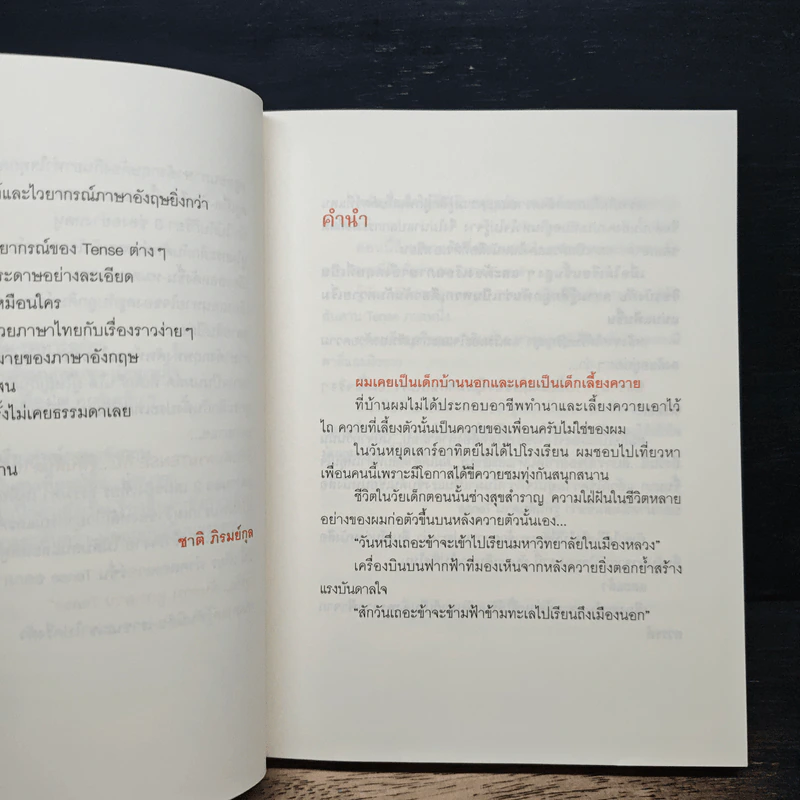 ์และไวยากรณ์ภาษาอังกฤษยิ่งกว่า
ยากรณ์ของ Tense ต่างๆ
ระดาษอย่างละเอียด
หมือนใคร
วยภาษาไทยกับเรื่องราวง่ายๆ
มายของภาษาอังกฤษ
ผน
รั้งไม่เคยธรรมดาเลย
าน
ชาติ ภิรมย์กุล
คำนำ
ผมเคยเป็นเด็กบ้านนอกและเคยเป็นเด็กเลี้ยงควาย
ที่บ้านผมไม่ได้ประกอบอาชีพทำนาและเลี้ยงควายเอาไว้
ไถ ควายที่เลี้ยงตัวนั้นเป็นควายของเพื่อนครับไม่ใช่ของผม
ในวันหยุดเสาร์อาทิตย์ไม่ได้ไปโรงเรียน ผมชอบไปเที่ยวหา
เพื่อนคนนี้เพราะมีโอกาสได้ขี่ควายชมทุ่งกันสนุกสนาน
ชีวิตในวัยเด็กตอนนั้นช่างสุขสำราญ ความใฝ่ฝันในชีวิตหลาย
อย่างของผมก่อตัวขึ้นบนหลังควายตัวนั้นเอง...
“วันหนึ่งเถอะข้าจะเข้าไปเรียนมหาวิทยาลัยในเมืองหลวง”
เครื่องบินบนฟากฟ้าที่มองเห็นจากหลังควายยิ่งตอกย้ำสร้าง
แรงบันดาลใจ
“สักวันเถอะข้าจะข้ามฟ้าข้ามทะเลไปเรียนถึงเมืองนอก”